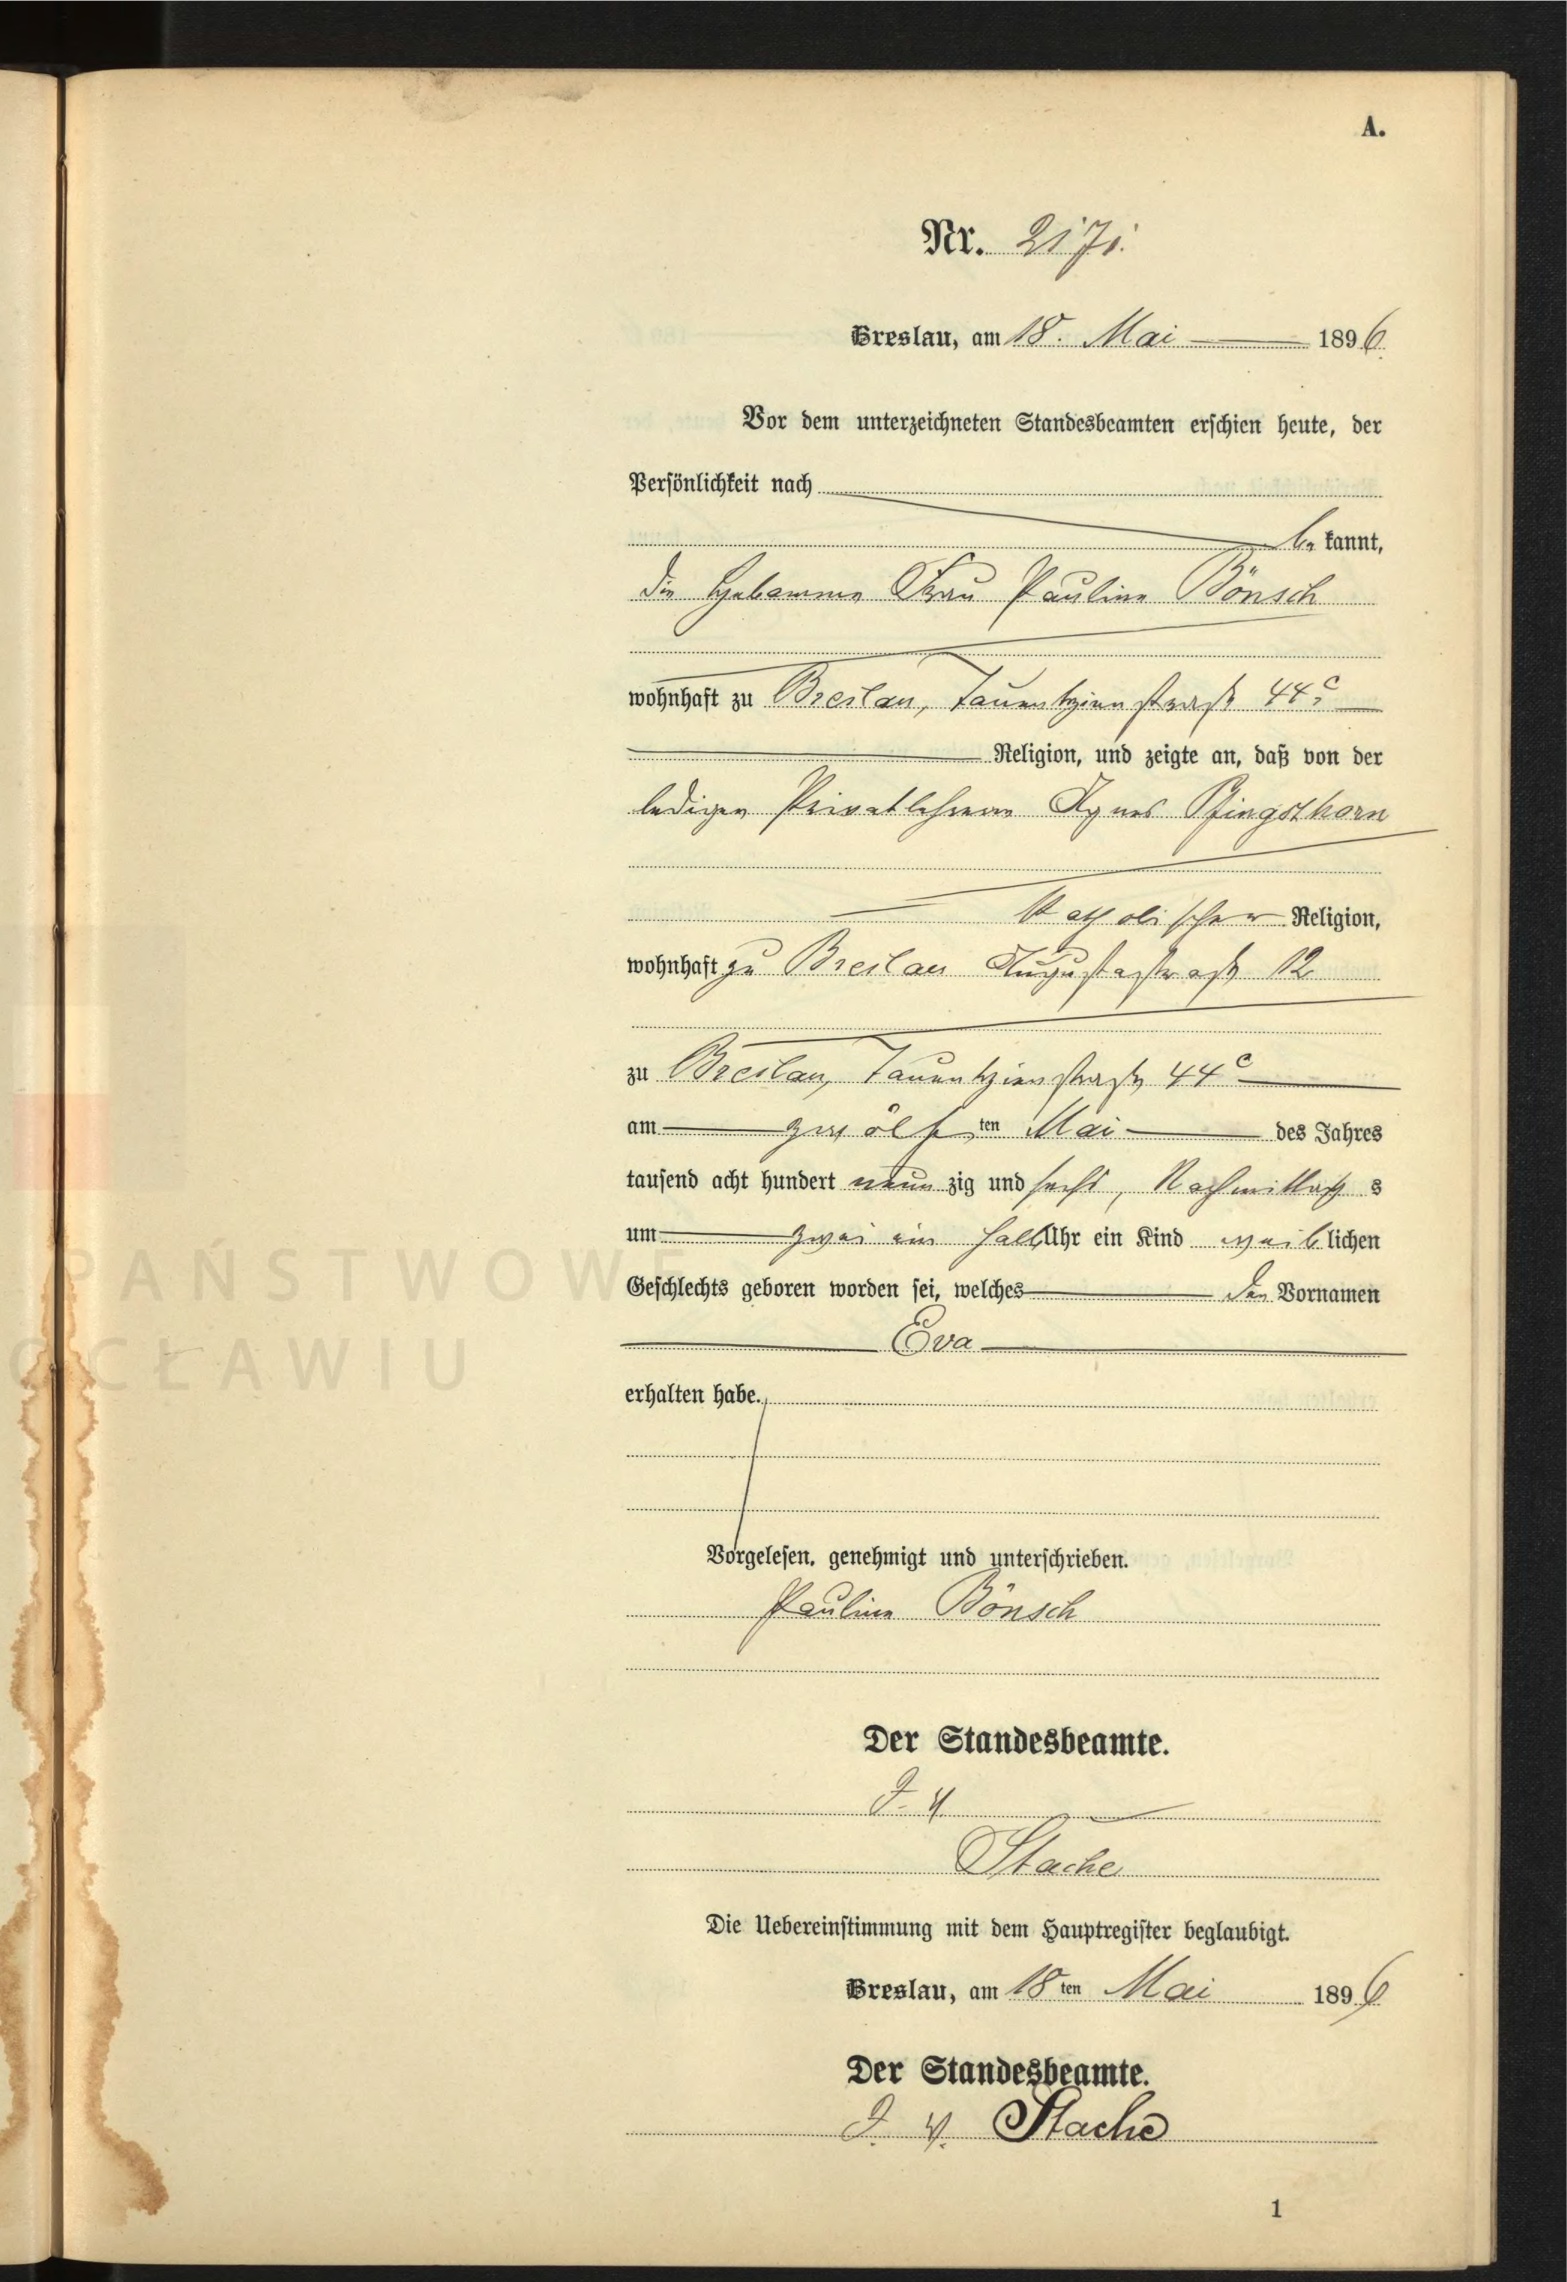 A.
Nr. 2171.
Breslau, am 18. Mai 1896
Vor dem unterzeichneten Standesbeamten erschien heute, der
Persönlichkeit nach
bekannt,
die Hebamme Frau Pauline Bönsch
wohnhaft zu Breslau, Tauentzienstraße 44c
Religion, und zeigte an, daß von der
ledigen Privatlehrerin Agnes Pfingsthorn
katholischer Religion,
wohnhaft zu Breslau Augustastraße 12
zu Breslau, Tauentzienstraße 44c
am zwölften Mai des Jahres
tausend acht hundert neunzig und sechs, Nachmittags
um zwei ein halb Uhr ein Kind weiblichen
Geschlechts geboren worden sei, welches den Vornamen
Eva
erhalten habe.
Vorgelesen, genehmigt und unterschrieben.
Pauline Bönsch
Der Standesbeamte.
J. V.
Stache
Die Uebereinstimmung mit dem Hauptregister beglaubigt.
Breslau, am 18ten Mai 1896
Der Standesbeamte.
J. V. Stache
1
PAŃSTWOWE
OCŁAWIU